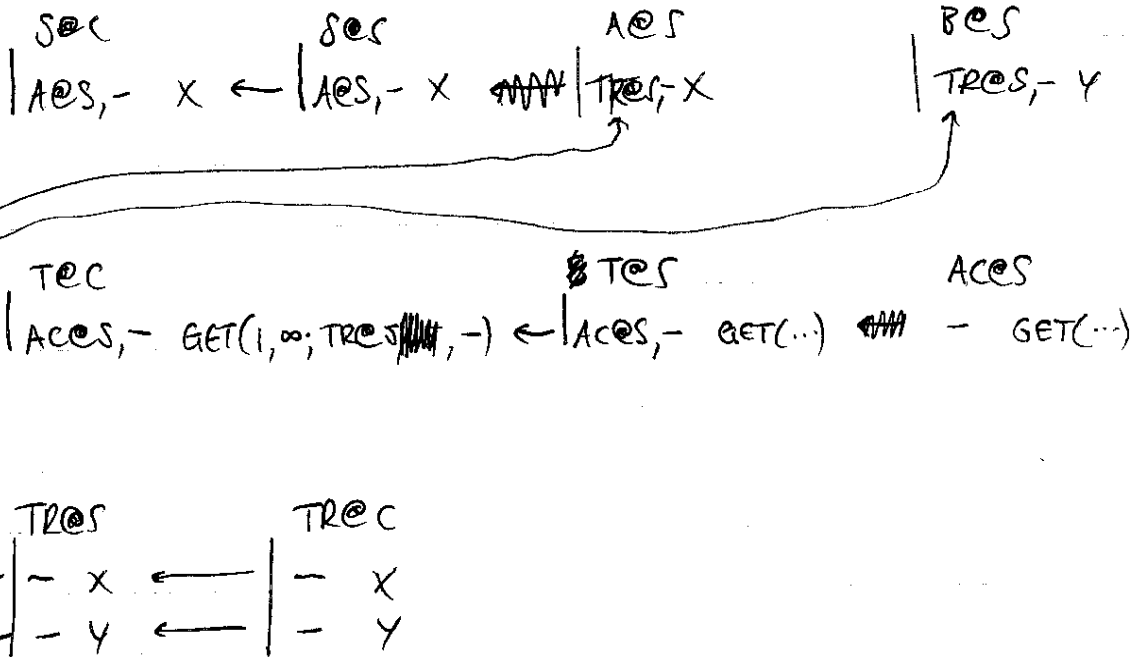 S@C S@S A@S B@S
A@S,- X ← A@S,- X TR@S,- X TR@S,- Y
T@C T@S AC@S
AC@S,- GET(1,∞; TR@S,-) ← AC@S,- GET(...) - GET(...)
TR@S TR@C
- X ← - X
- Y ← - Y